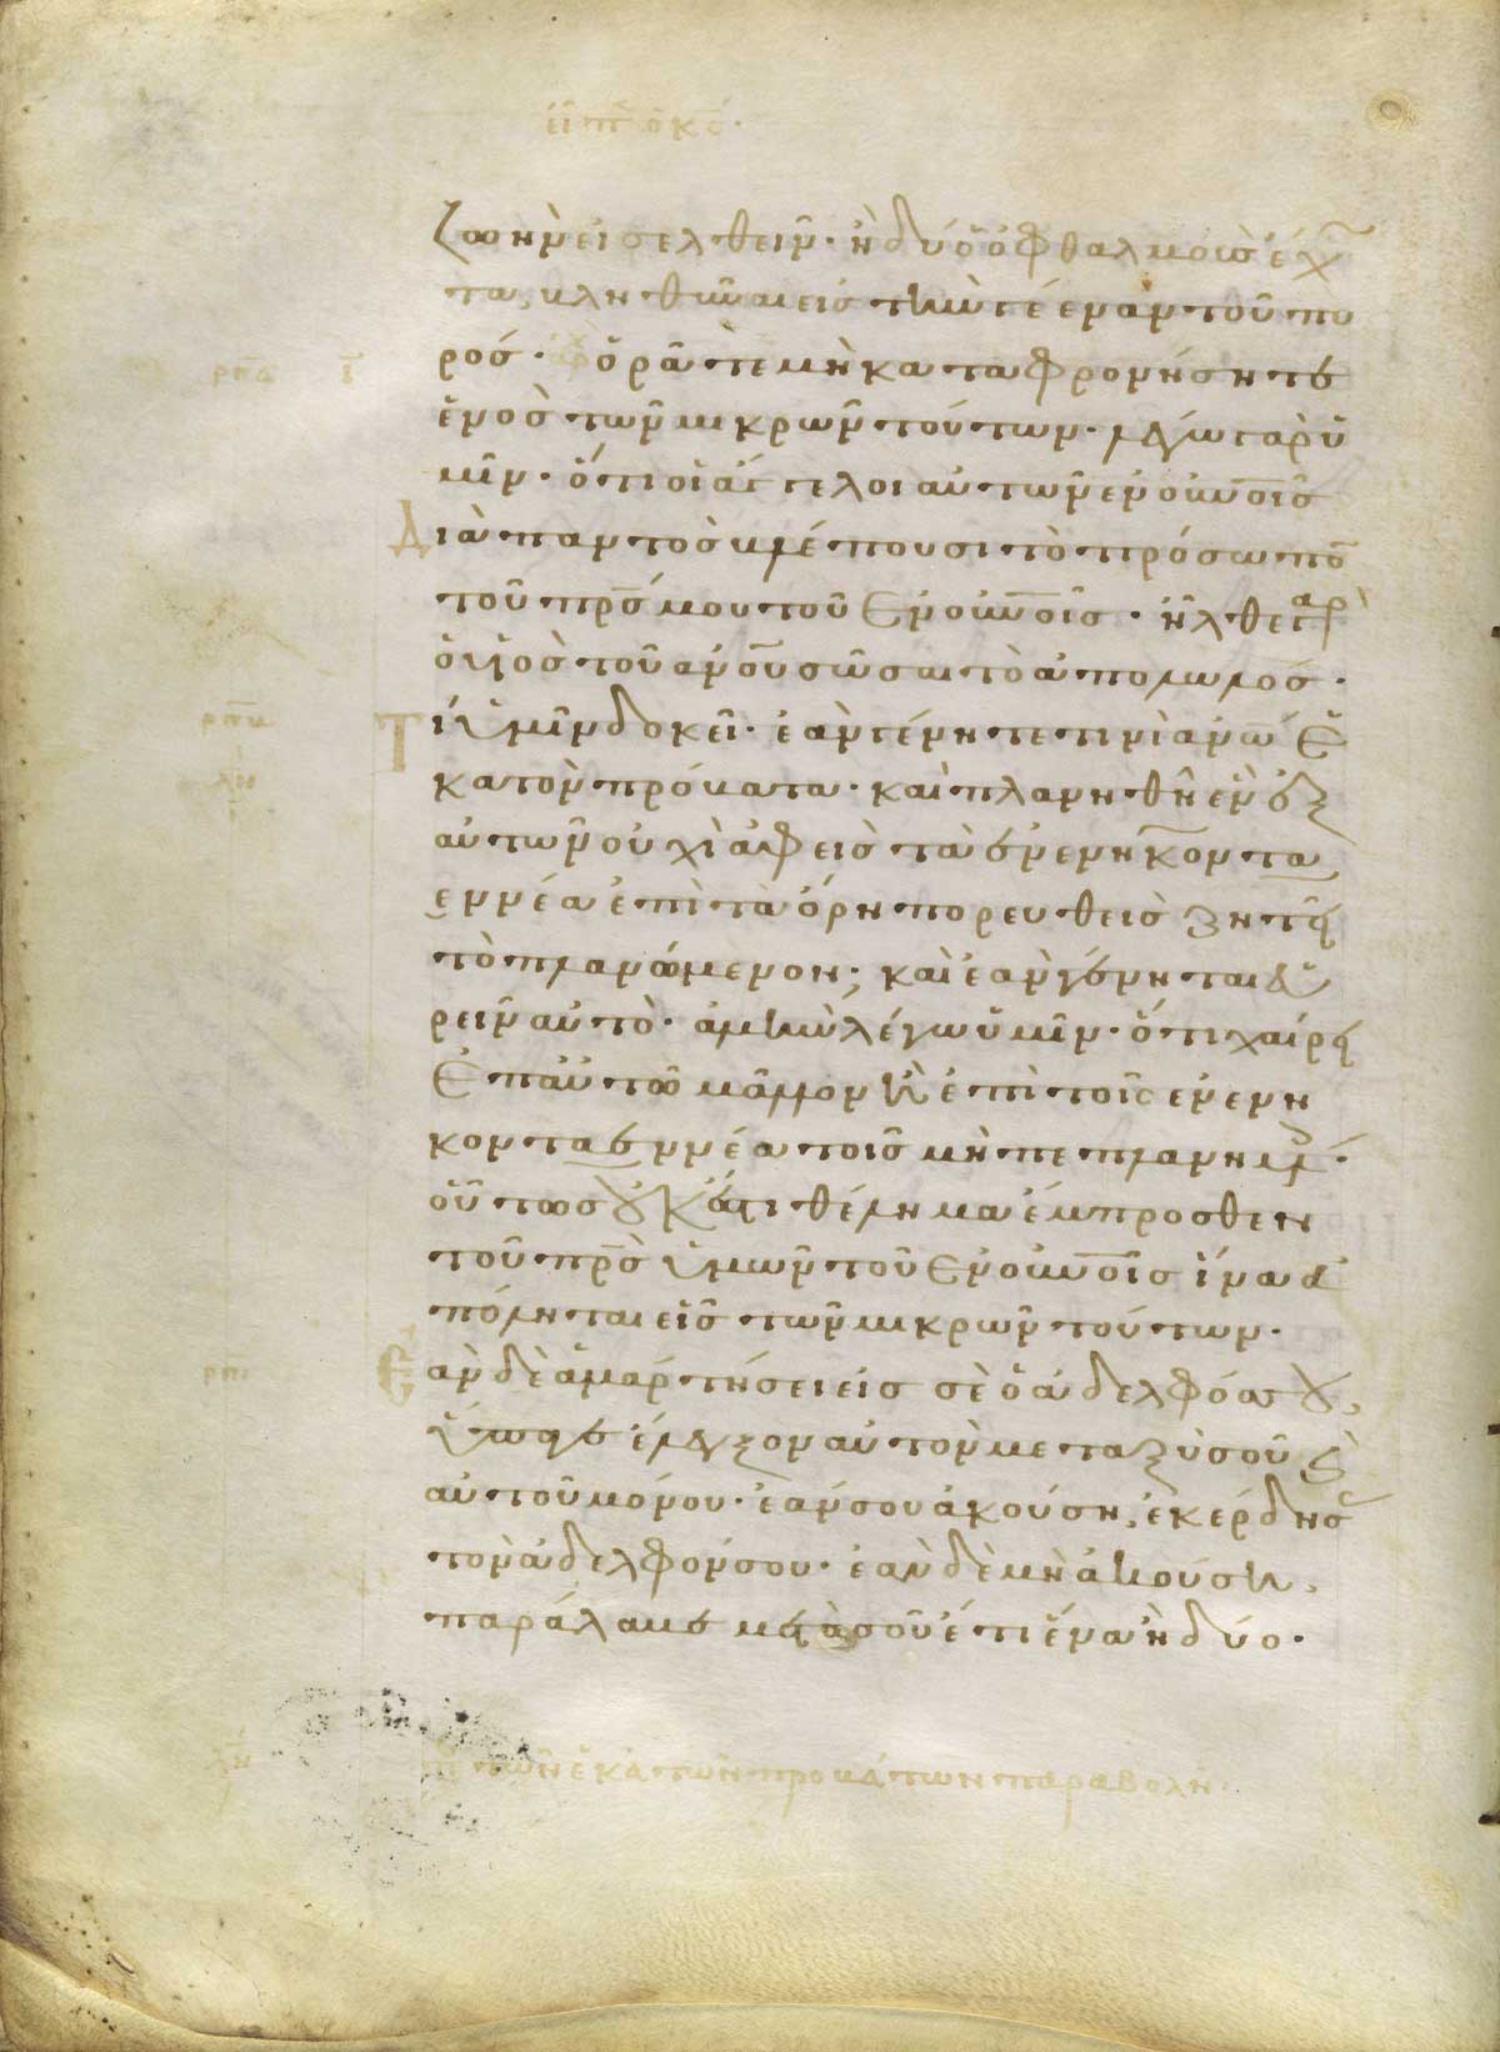 ζωὴν εἰσελθεῖν· ἢ δύο ὀφθαλμοὺς ἔχον
τα, βληθῆναι εἰς τὴν γέενναν τοῦ πυ
ρός· ὁρᾶτε μὴ καταφρονήσητε
ἑνὸς τῶν μικρῶν τούτων· λέγω γὰρ ὑ
μῖν· ὅτι οἱ ἄγγελοι αὐτῶν ἐν οὐνοῖς
Διὰ παντὸς βλέπουσι τὸ πρόσωπον
τοῦ πρσ μου τοῦ ἐν οὐνοῖς· ἦλθε γὰρ
ὁ υἱὸς τοῦ ἀνου σῶσαι τὸ ἀπολωλός·
Τί ὑμῖν δοκεῖ· ἐὰν γένηταί τινι ἀνω ἑ
κατὸν πρόβατα· καὶ πλανηθῆ ἓν ἐξ
αὐτῶν οὐχὶ ἀφεὶς τὰ ἐνενηκοντα
ἐννέα ἐπὶ τὰ ὄρη πορευθεὶς ζητεῖ
τὸ πλανώμενον; καὶ ἐὰν γένηται εὑ
ρεῖν αὐτὸ· ἀμὴν λέγω ὑμῖν· ὅτι χαίρει
ἐπ' αὐτῶ μᾶλλον ἢ ἐπὶ τοῖς ἐνενη
κονταεννέα τοῖς μὴ πεπλανημέ·
οὕτως οὐκ ἔστι θέλημα ἔμπροσθεν
τοῦ πρσ ὑμῶν τοῦ ἐν οὐνοῖς ἵνα ἀ
πόληται εἷς τῶν μικρῶν τούτων·
Ἐὰν δὲ ἁμαρτήσει εἰς σὲ ὁ ἀδελφός σου,
ὕπαγε ἔλεγξον αὐτὸν μεταξὺ σοῦ καὶ
αὐτοῦ μόνου· ἐάν σου ἀκούση, ἐκέρδησας
τὸν ἀδελφόν σου· ἐὰν δὲ μὴ ἀκούση,
παράλαβε μετὰ σοῦ ἔτι ἕνα ἢ δύο·
τῶν ἑκατὸν προβάτων παραβολή·